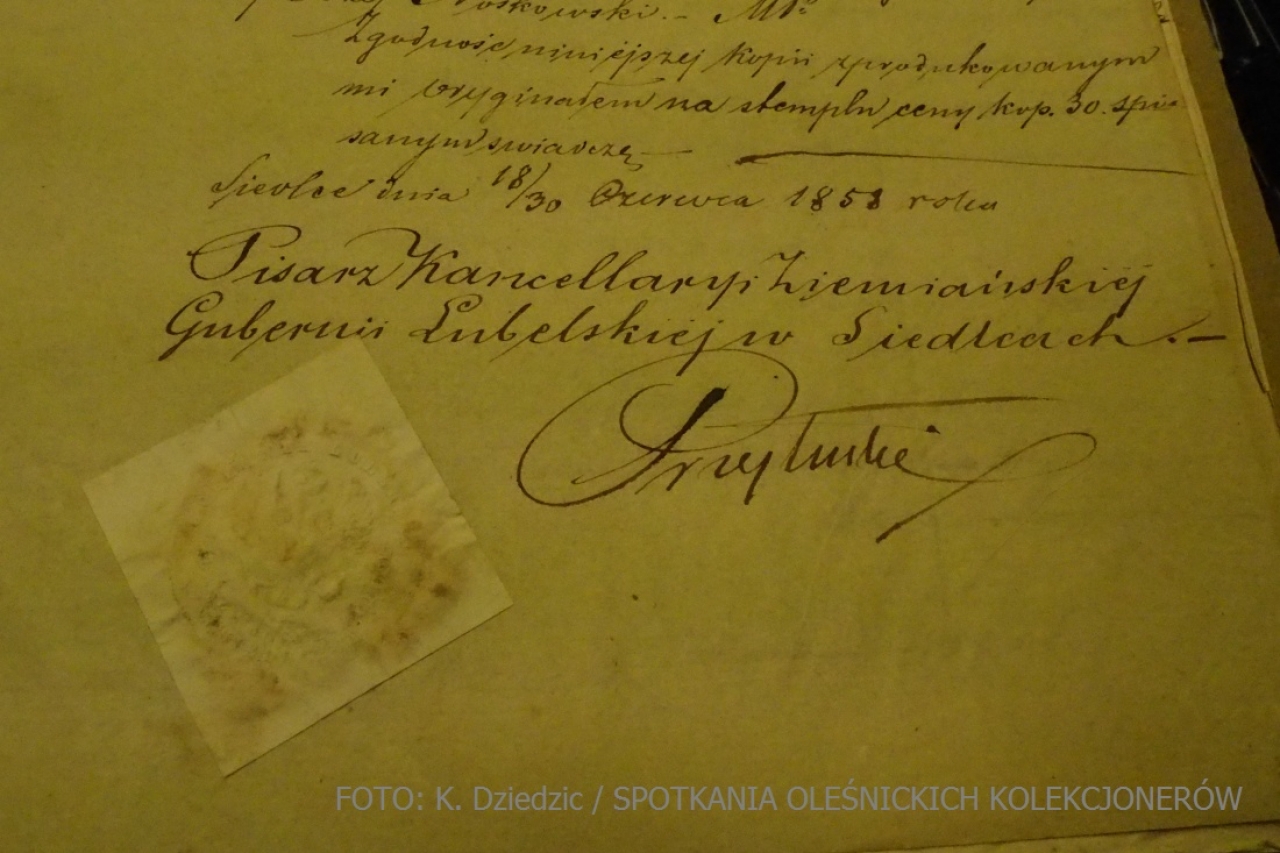 Noskowski. – Mp
Zgodność niniejszej kopii zprodukowanym
mi oryginałem na stemplu ceny kop. 30. spi-
sanym swiadczę
Siedlce dnia 18/30 Czerwca 1858 roku
Pisarz Kancellaryi Ziemiańskiéj
Gubernii Lubelskiéj w Siedlcach. –
Przyłuski
FOTO: K. Dziedzic / SPOTKANIA OLEŚNICKICH KOLEKCJONERÓW